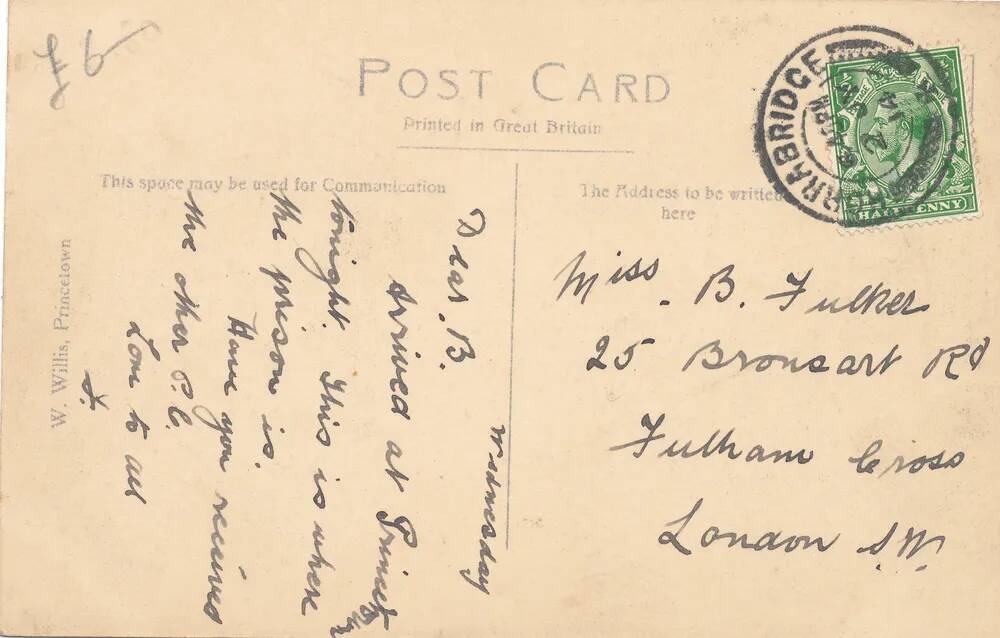 £6
POST CARD
Printed in Great Britain
This space may be used for Communication
The Address to be written
here
W. Willis, Princetown
HORRABRIDGE
HALFPENNY
Wednesday
Dear B.
Arrived at Princet
tonight. This is where
the prison is.
Have you received
the other P.C.
Love to all
Miss. B. Fulker
25 Bronsart Rd
Fulham Cross
London S.W.